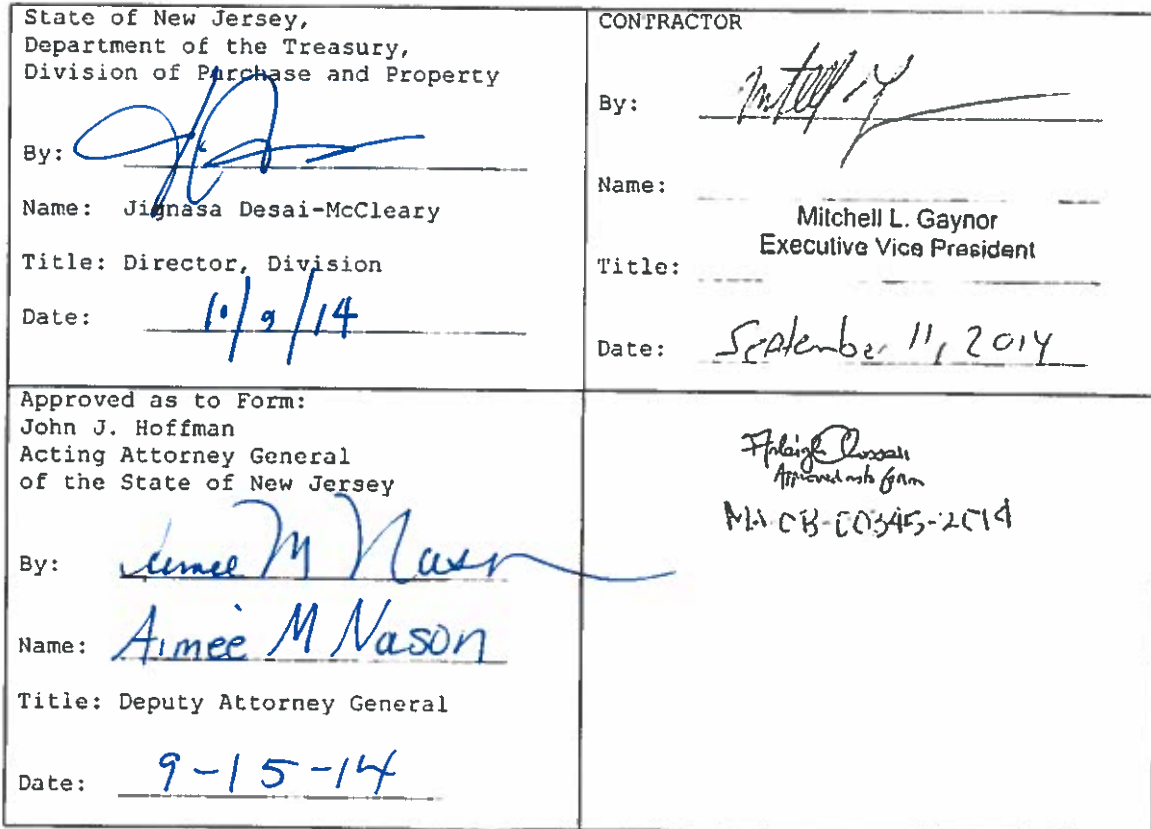 State of New Jersey,
Department of the Treasury,
Division of Purchase and Property
By:
Name: Jignasa Desai-McCleary
Title: Director, Division
Date: 10/9/14
CONTRACTOR
By:
Name:
Mitchell L. Gaynor
Executive Vice President
Title:
Date: September 11, 2014
Approved as to Form:
John J. Hoffman
Acting Attorney General
of the State of New Jersey
By: Aimee M Nason
Name: Aimee M Nason
Title: Deputy Attorney General
Date: 9-15-14
Approved as to form